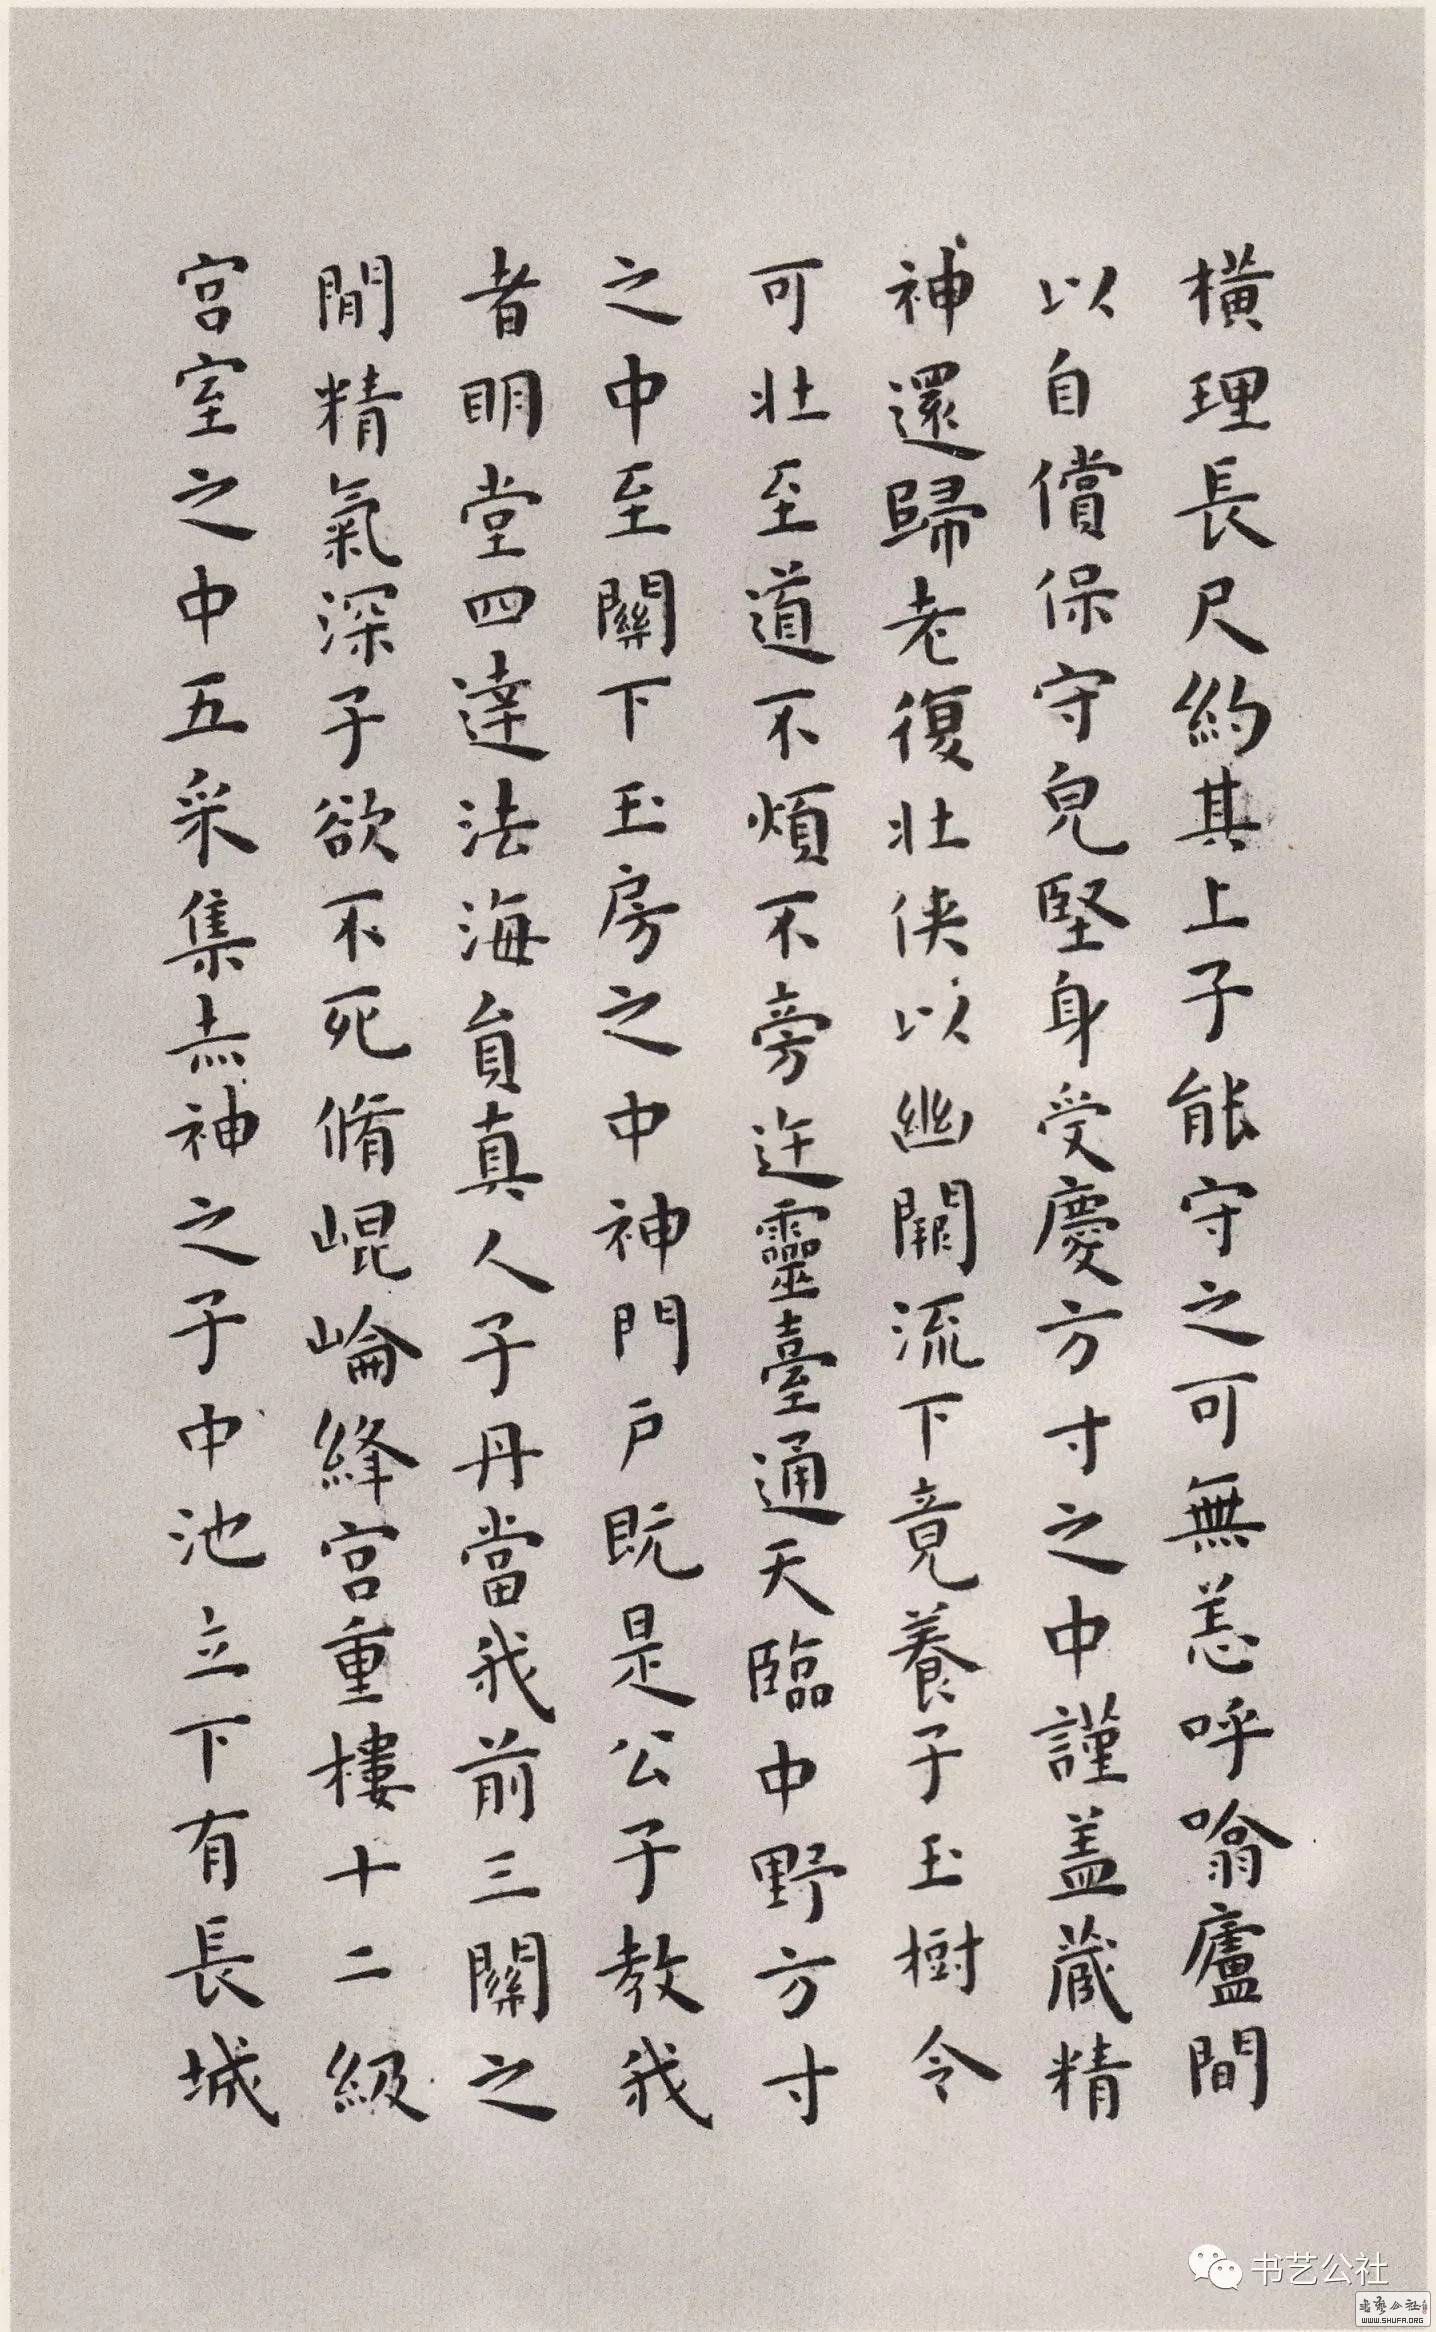 橫理長尺約其上子能守之可無恙呼噏廬間
以自償保守皃堅身受慶方寸之中謹盖蔵精
神還歸老復壯侠以幽闕流下竟養子玉樹令
可壯至道不煩不旁迕靈臺通天臨中野方寸
之中至關下玉房之中神門户既是公子教我
者明堂四達法海員真人子丹當我前三關之
間精氣深子欲不死脩崐崘絳宫重樓十二級
宫室之中五采集赤神之子中池立下有長城
书艺公社
书艺公社
WWW.SHUFA.ORG